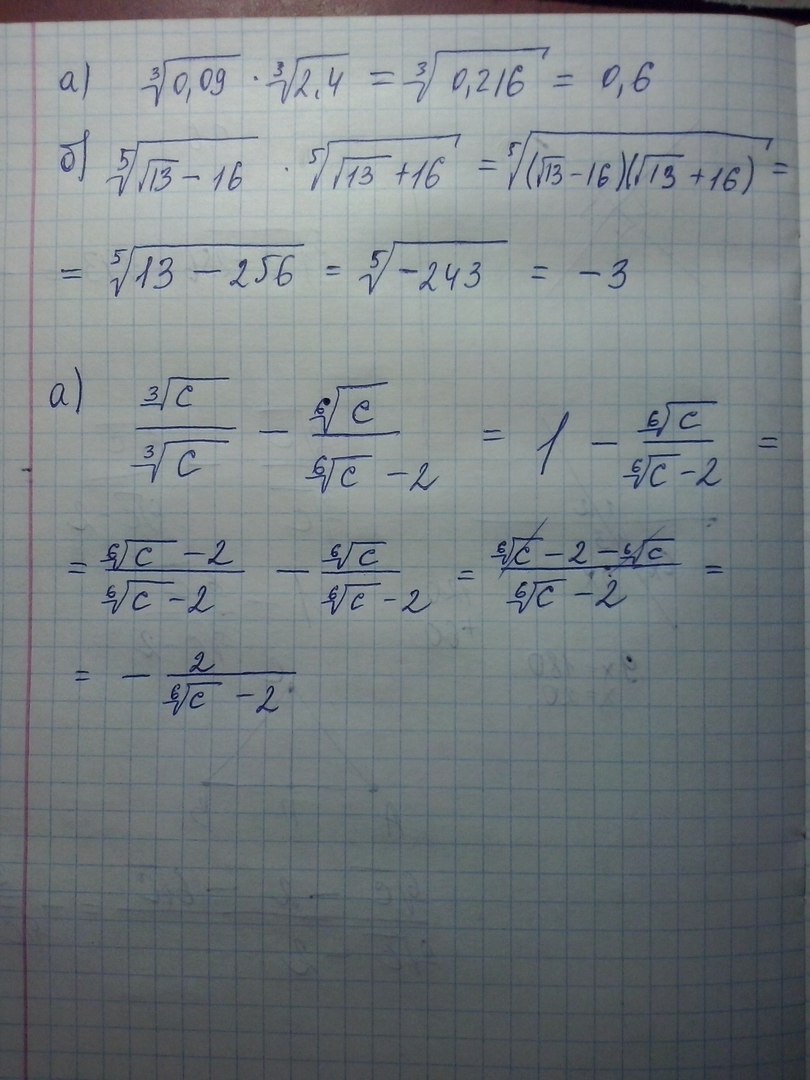 а) ∛0,09 · ∛2,4 = ∛0,216 = 0,6
б) ⁵√(√13 − 16) · ⁵√(√13 + 16) = ⁵√((√13 − 16)(√13 + 16)) =
= ⁵√(13 − 256) = ⁵√(−243) = −3
а) ∛c / ∛c − ⁶√c / (⁶√c − 2) = 1 − ⁶√c / (⁶√c − 2) =
= (⁶√c − 2) / (⁶√c − 2) − ⁶√c / (⁶√c − 2) = (⁶√c − 2 − ⁶√c) / (⁶√c − 2) =
= − 2 / (⁶√c − 2)